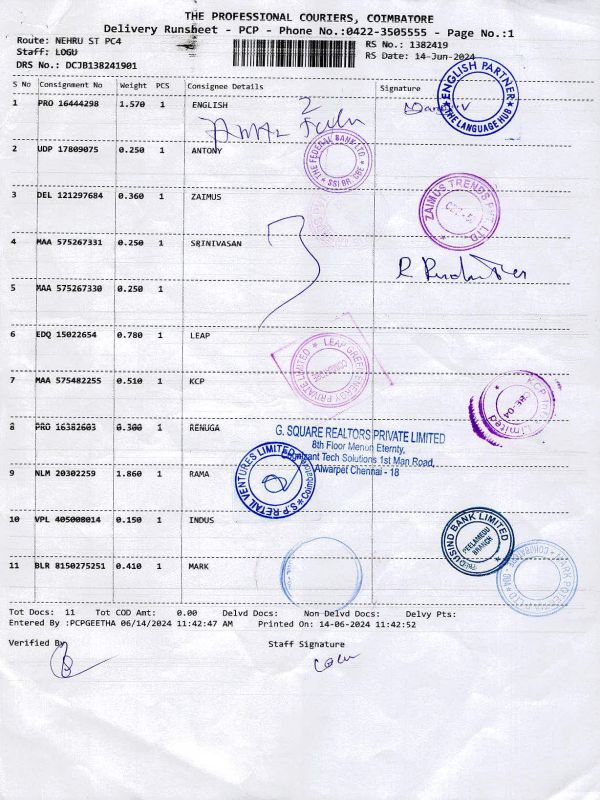 THE PROFESSIONAL COURIERS, COIMBATORE
Delivery Runsheet - PCP - Phone No.:0422-3505555 - Page No.:1
Route: NEHRU ST PC4
RS No.: 1382419
Staff: LOGU
RS Date: 14-Jun-2024
DRS No.: DCJB138241901
S No Consignment No Weight PCS Consignee Details Signature
1 PRO 16444298 1.570 1 ENGLISH
2
ENGLISH PARTNER
THE LANGUAGE HUB
2 UDP 17809075 0.250 1 ANTONY
THE FEDERAL BANK LTD.
SSI BR. CBE
3 DEL 121297684 0.360 1 ZAIMUS
ZAIMUS TRENDS PVT LTD
4 MAA 575267331 0.250 1 SRINIVASAN
5 MAA 575267330 0.250 1
6 EDQ 15022654 0.780 1 LEAP
LEAP GREEN ENERGY PRIVATE LIMITED
COIMBATORE
7 MAA 575482255 0.510 1 KCP
8 PRO 16382603 0.300 1 RENUGA
G. SQUARE REALTORS PRIVATE LIMITED
8th Floor Menon Eternty,
Tech Solutions 1st Man Road,
Alwarpet Chennai - 18
9 NLM 20302259 1.860 1 RAMA
S.P. RETAIL VENTURES LIMITED
10 VPL 405008014 0.150 1 INDUS
INDUSIND BANK LIMITED
PEELAMEDU
BRANCH
11 BLR 8150275251 0.410 1 MARK
Tot Docs: 11 Tot COD Amt: 0.00 Delvd Docs: Non Delvd Docs: Delvy Pts:
Entered By :PCPGEETHA 06/14/2024 11:42:47 AM Printed On: 14-06-2024 11:42:52
Verified By
Staff Signature